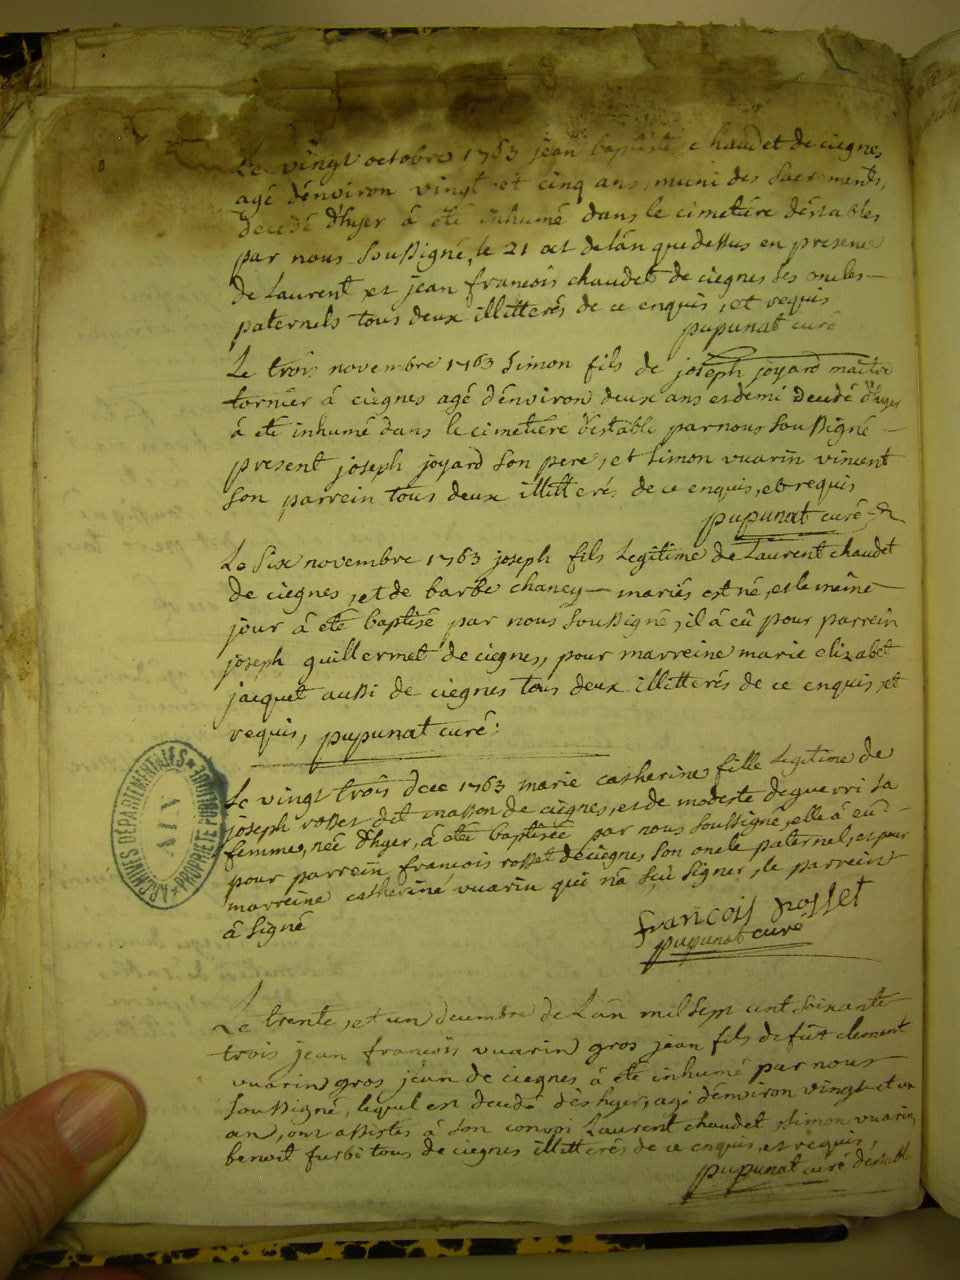 Le vingt octobre 1763 jean baptiste chaudet de ciegnes,
agé d'énviron vingt et cinq ans, muni des sacrements,
decedé d'hyer á été inhumé dans le cimetiére déstables
par nous soussigné, le 21 oct de l'án que dessus en presence
de Laurent et jean francois chaudet de ciegnes ses oncles
paternels tous deux illitterés de ce enquis, et requis
pupunat curé
Le trois novembre 1763 simon fils de joseph joyard maitre
tornier á ciegnes agé d'énviron deux ans et demi decedé d'hyer
á été inhumé dans le cimetiére d'estable par nous soussigné
present joseph joyard son pere, et simon vuarin vincent
son parrein tous deux illitterés de ce enquis, et requis
pupunat curé
Le six novembre 1763 joseph fils legitime de Laurent chaudet
de ciegnes, et de barbe chaney mariés est né, et le même
jour á été baptisé par nous soussigné, il á eû pour parrein
joseph guillermet de ciegnes, pour marreine marie elizabet
jacquet aussi de ciegnes tous deux illitterés de ce enquis, et
requis, pupunat curé:
Le vingt trois dece 1763 marie catherine fille legitime de
joseph rosset dit masson de ciegnes, et de modeste deguerri sa
femme, née d'hyer, á été baptisée par nous soussigné, elle á eû
pour parrein francois rosset de ciegnes son oncle paternel, et pour
marreine catherine vuarin qui n'á sçû signer, le parrein
á signé
francois rosset
pupunat curé
Le trente, et un decembre de L'án mil sept cent soixante
trois jean francois vuarin gros jean fils de fût clement
vuarin gros jean de ciegnes á été inhumé par nous
soussigné, lequel est decedé dés hyer, agé d'énviron vingt et un
an, ont assistés á son convoi Laurent chaudet, simon vuarin,
benoit furbi tous de ciegnes illitterés de ce enquis, et requis,
pupunat curé destable
ARCHIVES DÉPARTEMENTALES
AIN
PROPRIÉTÉ PUBLIQUE